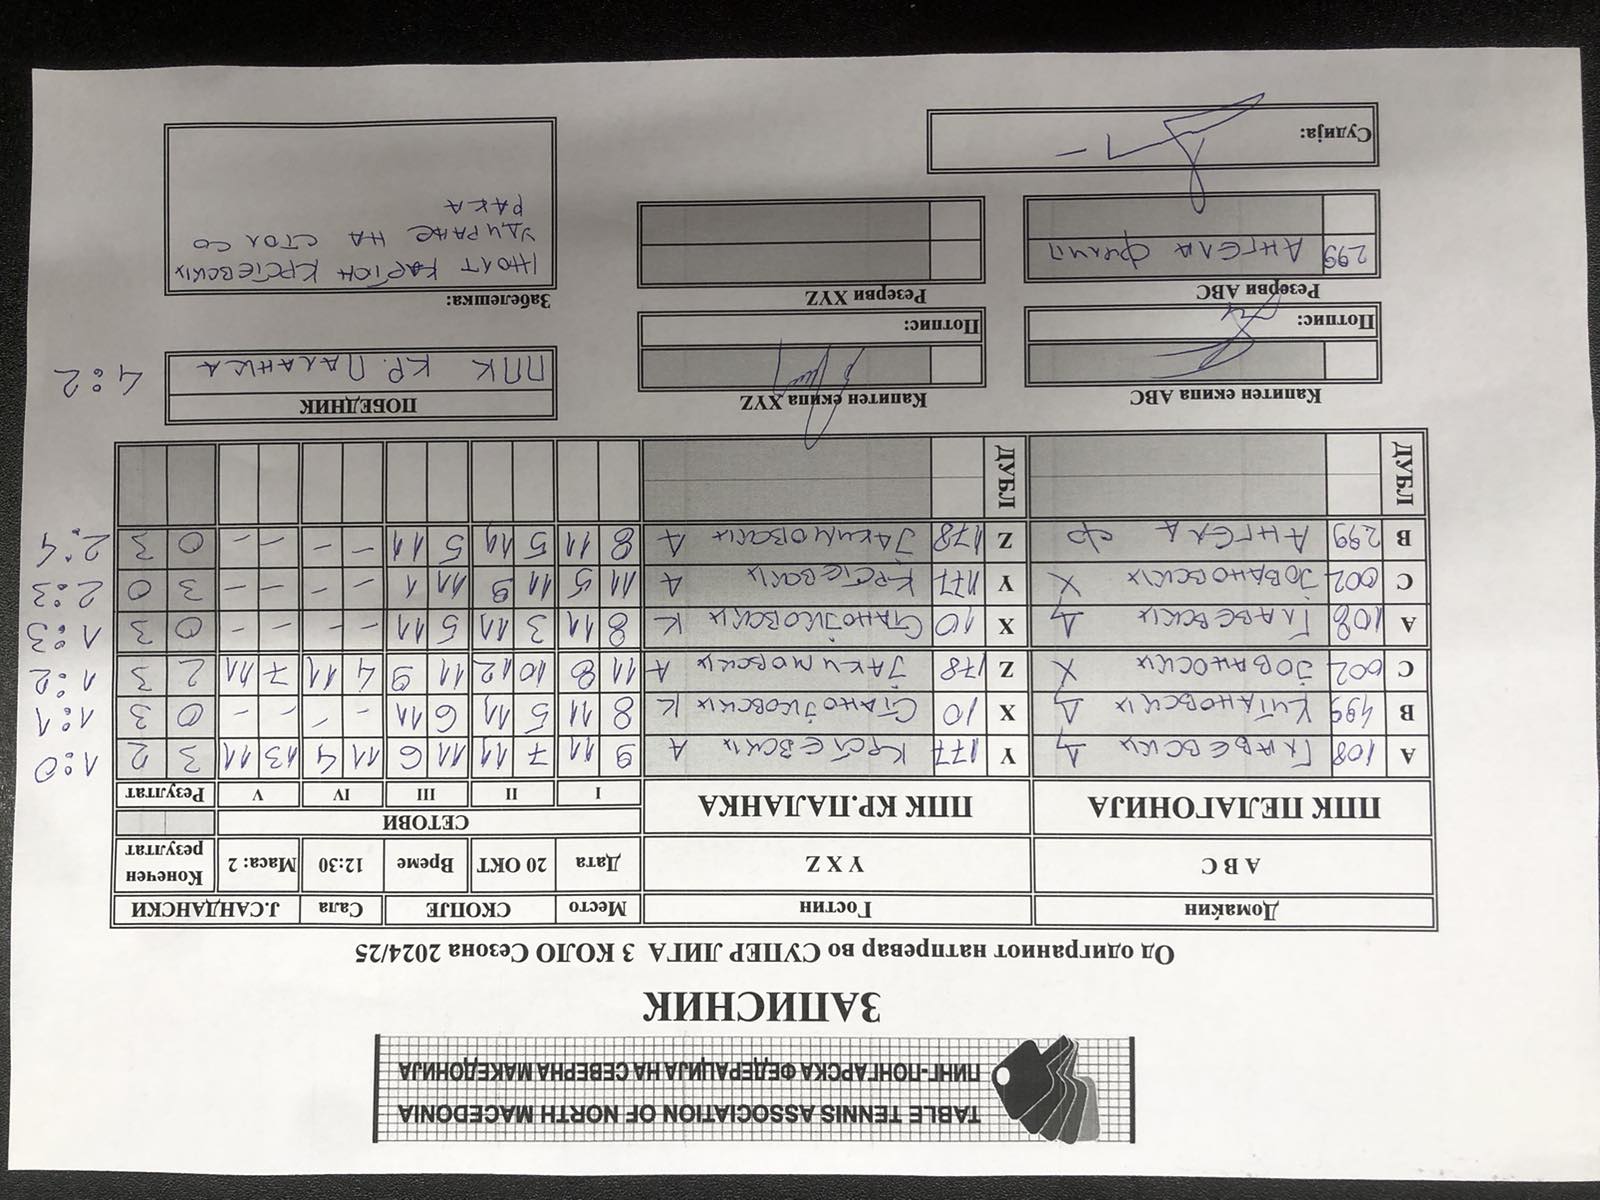 TABLE TENNIS ASSOCIATION OF NORTH MACEDONIA
ПИНГ-ПОНГАРСКА ФЕДЕРАЦИЈА НА СЕВЕРНА МАКЕДОНИЈА
ЗАПИСНИК
Од одиграниот натпревар во СУПЕР ЛИГА 3 КОЛО Сезона 2024/25
Домаќин Гостин Место СКОПЈЕ Сала Ј.САНДАНСКИ
A B C Y X Z Дата 20 ОКТ Време 12:30 Маса: 2 Конечен резултат
ППК ПЕЛАГОНИЈА ППК КР.ПАЛАНКА СЕТОВИ
I II III IV V Резултат
A 108 ГЛАВЕВСКИ Д Y 177 КРСТЕВСКИ А 9 11 7 11 11 6 11 4 13 11 3 2 1:0
B 499 КИТАНОВСКИ Д X 10 СТАНОЈКОВСКИ К 8 11 5 11 6 11 – – – – 0 3 1:1
C 002 ЈОВАНОСКИ Х Z 178 ЈАКИМОВСКИ А 11 8 10 12 11 9 4 11 7 11 2 3 1:2
A 108 ГЛАВЕВСКИ Д X 10 СТАНОЈКОВСКИ К 8 11 3 11 5 11 – – – – 0 3 1:3
C 002 ЈОВАНОВСКИ Х Y 177 КРСТЕВСКИ А 11 5 11 9 11 1 – – – – 3 0 2:3
B 299 АНГЕЛА Ф Z 178 ЈАКИМОВСКИ А 8 11 5 11 5 11 – – – – 0 3 2:4
ДУБЛ ДУБЛ
Капитен екипа ABC Капитен екипа XYZ ПОБЕДНИК
ППК КР. ПАЛАНКА 4:2
Потпис: Потпис:
Резерви ABC Резерви XYZ Забелешка:
299 АНГЕЛА ФИЛИП
ЖОЛТ КАРТОН КРСТЕВСКИ
УДИРАЊЕ НА СТОЛ СО
РАКА
Судија: